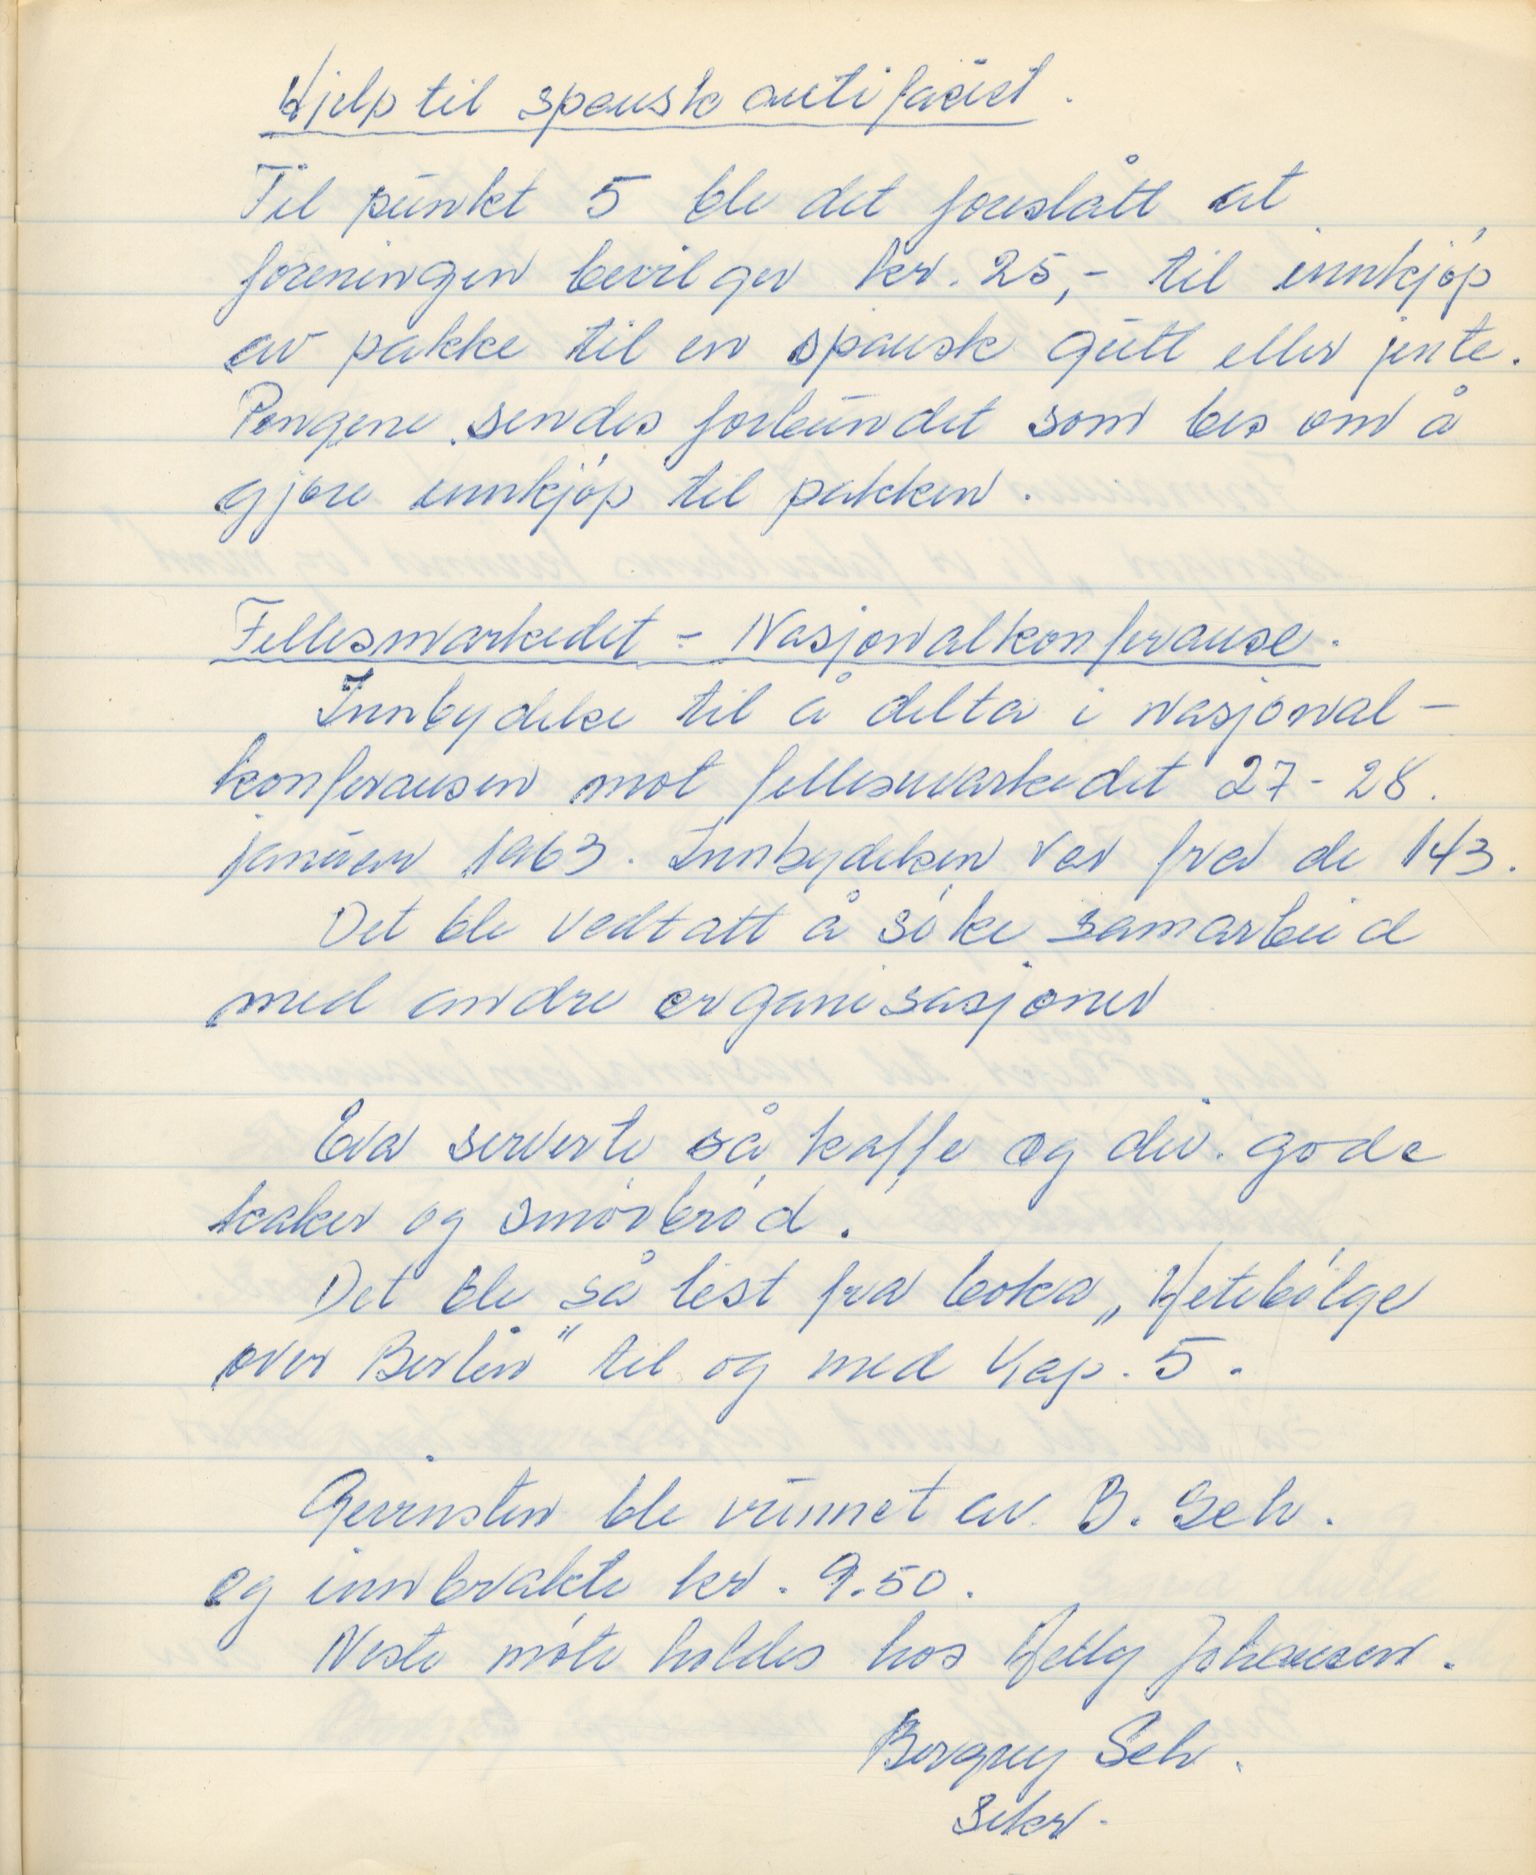 Hjelp til spansk antifacist.
Til punkt 5 ble det foreslått at
foreningen bevilger kr. 25,- til innkjøp
av pakke til en spansk gutt eller jente.
Pengene sendes forbundet som bes om å
gjøre innkjøp til pakken.
Fellesmarkedet - Nasjonalkonferanse.
Innbydelse til å delta i nasjonal-
konferansen mot fellesmarkedet 27-28.
januar 1963. Innbydelsen var fra de 143.
Det ble vedtatt å søke samarbeid
med andre organisasjoner
Eva serverte så kaffe og div. gode
kaker og smørbrød.
Det ble så lest fra boka „Hetebølge
over Berlin" til og med Kap. 5.
Gevinsten ble vunnet av B. Seh.
og innbrakte kr. 9.50.
Neste møte holdes hos Helly Johansen.
Borgny Seh.
Sekr.